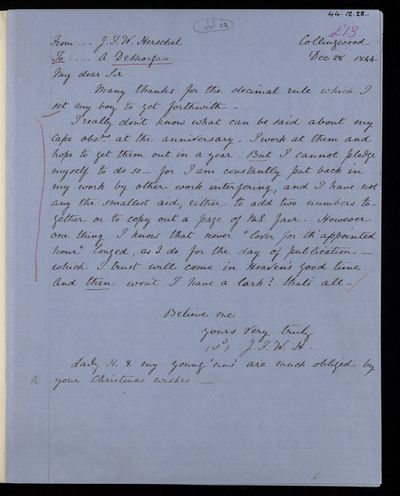 44.12.28.
£13
From --- J.F.W. Herschel Collingwood
To ---- A DeMorgan Dec 28 1844
My dear Sir
Many thanks for the decimal rule which I
set my boy to get forthwith -
I really don't know what can be said about my
Cape obsns at the anniversary. I work at them and
hope to get them out in a year. But I cannot pledge
myself to do so - for I am constantly put back in
my work by other work interfering, and I have not
any the smallest aid, either to add two numbers to-
gether or to copy out a page of MS fair. However
one thing I know that never "lover for th' appointed
hour" longed, as I do for the day of publication -
which I trust will come in Heaven's good time.
And then won't I have a lark? that's all -
Believe me
yours very truly
(sd) J.F.W.H.
Lady H. & my young 'uns' are much obliged by
your Christmas wishes -